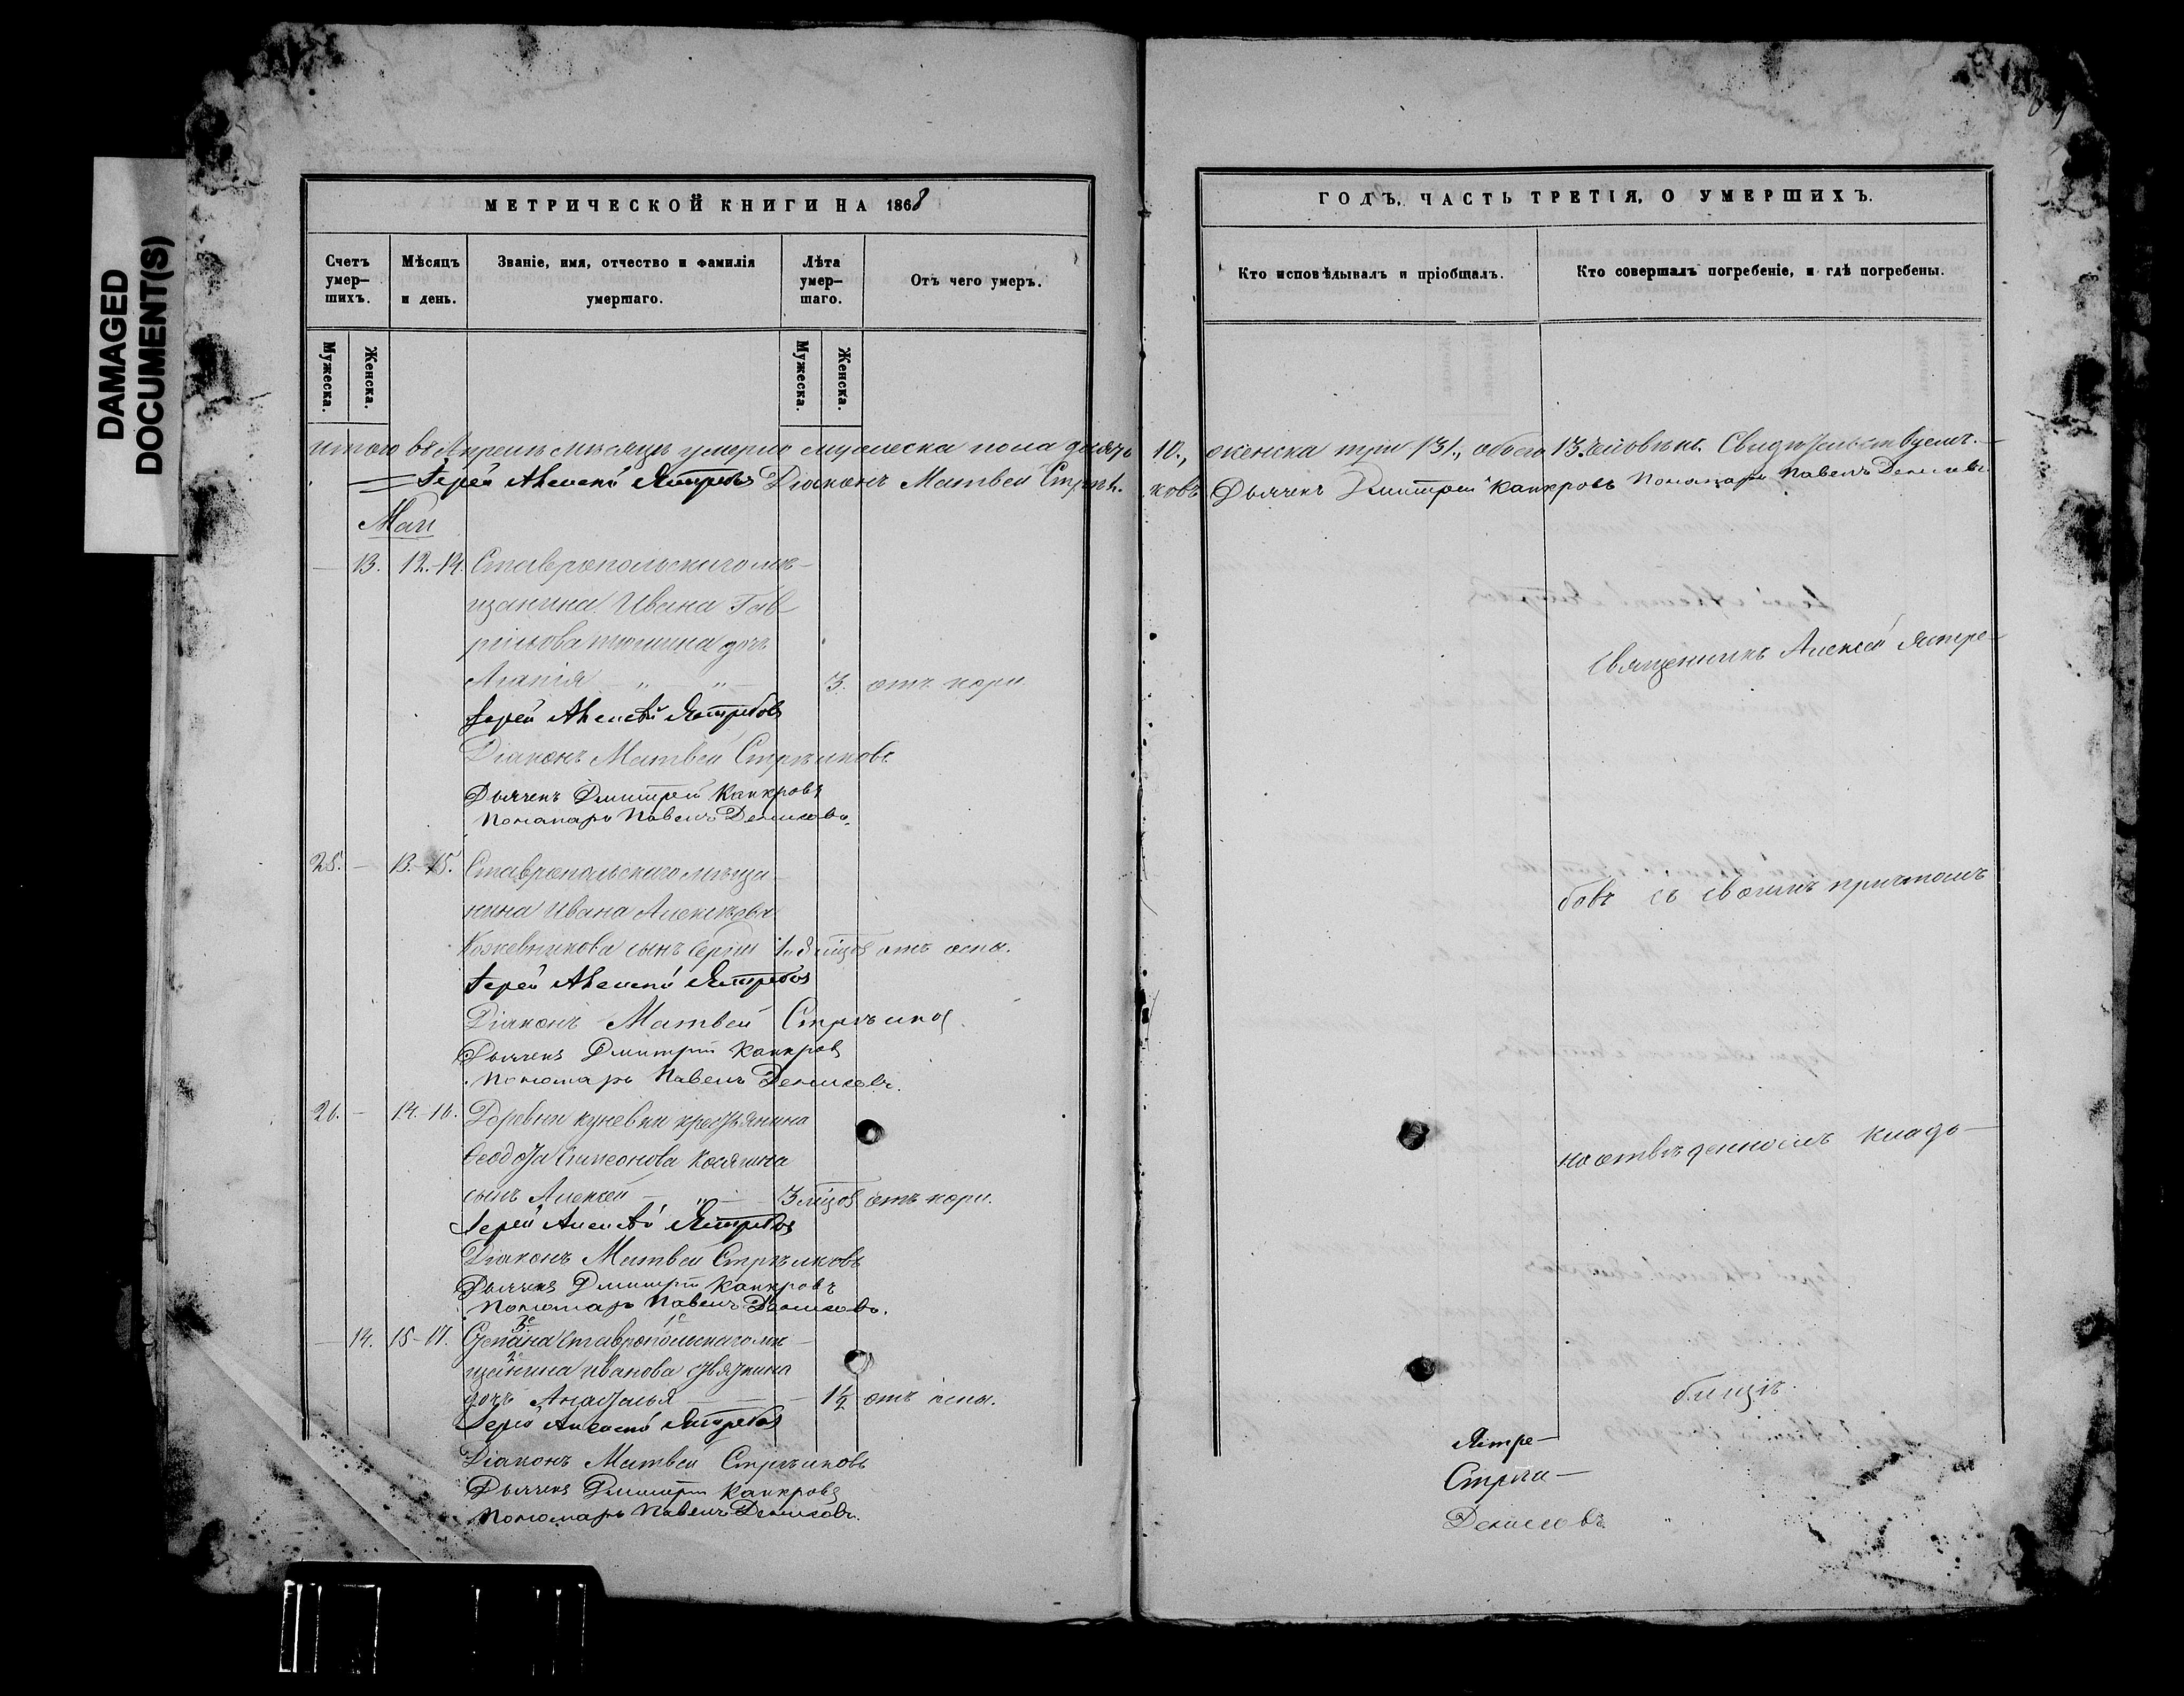 DAMAGED
DOCUMENT(S)
МЕТРИЧЕСКОЙ КНИГИ НА 1868
Счетъ умер-шихъ.
Мѣсяцъ и день.
Званіе, имя, отчество и фамилія умершаго.
Лѣта умер-шаго.
Отъ чего умеръ.
Мужеска.
Женска.
Мужеска.
Женска.
Итого въ Апрелѣ мѣсяцѣ умерло мужеска пола десять
Іерей Алексей Ястребовъ Діаконъ Матвей Стрѣл.
Маи
13. 12.-14. Ставропольскаго мѣ-
щанина Ивана Гав-
рилова дочь
Агапія 3. отъ кори
Іерей Алексей Ястребовъ
Діаконъ Матвей Стрѣлковъ
Дьячекъ Дмитрей Капкровъ
Пономарь Павелъ Денисовъ.
25. - 13.-15. Ставропольскаго мѣща-
нина Ивана Алексѣева
Кожевникова сынъ Сергій отъ оспы.
Іерей Алексей Ястребов
Діаконъ Матвей Стрѣлков
Дьячекъ Дмитрій Капкров
Пономарь Павелъ Денисовъ.
26. - 14.-16. Деревни кунѣевки крестьянина
Ѳеодота Симеонова
сынъ Алексей 3 мѣцов отъ кори.
Іерей Алексей Ястребов
Діаконъ Матвей Стрѣлковъ
Дьячекъ Дмитрій Капкровъ
Пономарь Павелъ Денисовъ.
14. 15-17. Степана Ставропольскаго мѣ-
щанина Иванова
дочь Анастасья 1½ отъ оспы.
Іерей Алексей Ястребов
Діаконъ Матвей Стрѣлковъ
Дьячекъ Дмитрій Капкровъ
Пономарь Павелъ Денисовъ.
ГОДЪ, ЧАСТЬ ТРЕТІЯ, О УМЕРШИХЪ.
Кто исповѣдывалъ и пріобщалъ.
Кто совершалъ погребеніе, и гдѣ погребены.
10., женска три 3., обоего 13. человѣкъ. Свидѣтельствуемъ.
ковъ Дьячекъ Дмитрей Капкровъ Пономарь Павелъ Денисовъ
Священникъ Алексей Ястре-
бовъ съ своимъ причтомъ
на отвѣденномъ кладо-
бищѣ.
Ястре-
Стрѣл-
Денисовъ